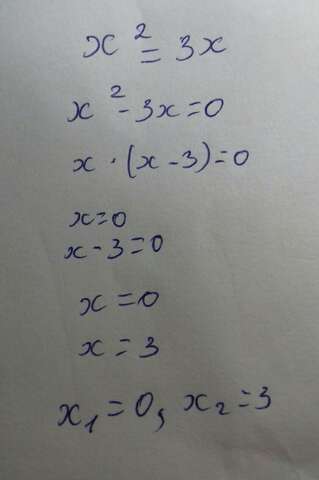 x² = 3x
x² - 3x = 0
x · (x - 3) = 0
x = 0
x - 3 = 0
x = 0
x = 3
x₁ = 0, x₂ = 3